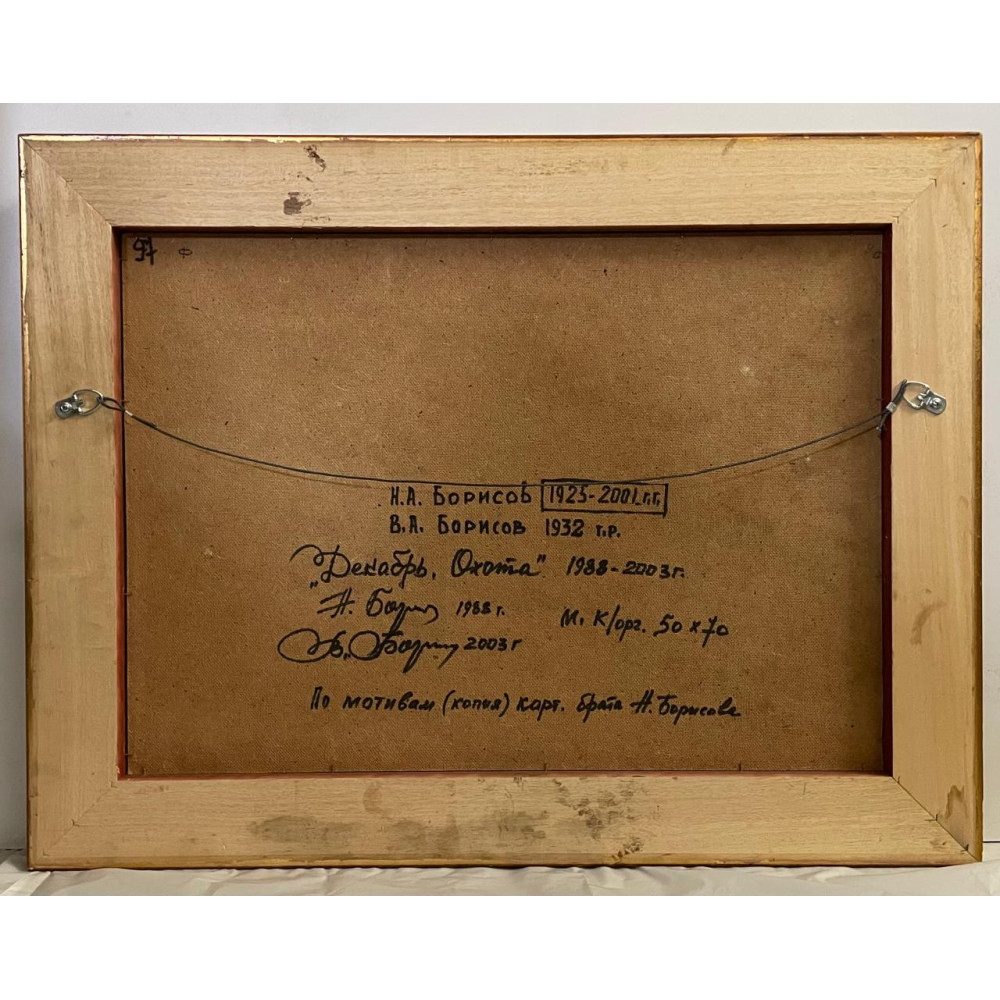 97
Н.А. БОРИСОВ 1925-2001 г.г.
В.А. БОРИСОВ 1932 г.р.
„Декабрь, Охота" 1988-2003г.
Н. Борис 1988 г.
М. К/орг. 50 х 70
В. Борис 2003 г
По мотивам (копия) карт. брата Н. Борисова